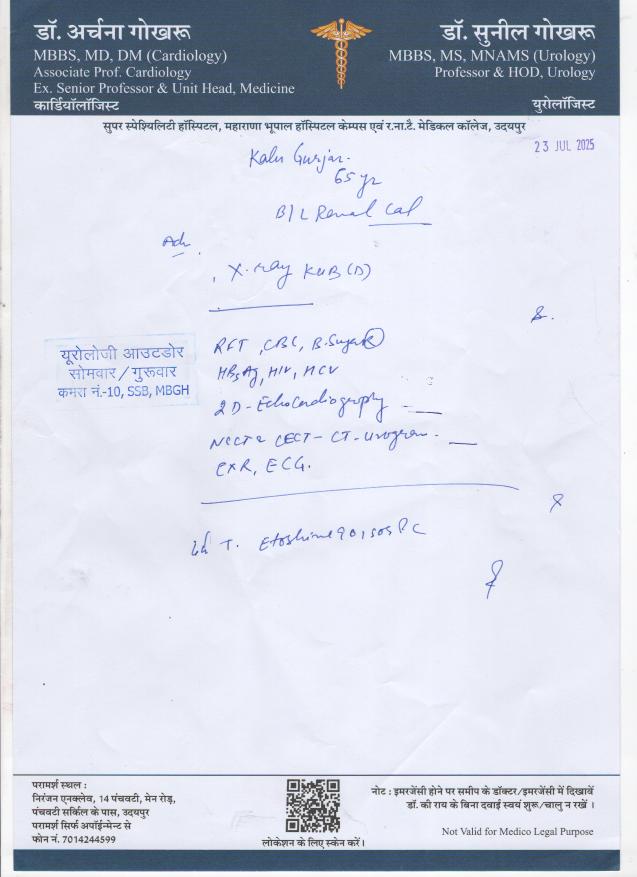 डॉ. अर्चना गोखरू
MBBS, MD, DM (Cardiology)
Associate Prof. Cardiology
Ex. Senior Professor & Unit Head, Medicine
कार्डियॉलॉजिस्ट
डॉ. सुनील गोखरू
MBBS, MS, MNAMS (Urology)
Professor & HOD, Urology
युरोलॉजिस्ट
सुपर स्पेश्यिलिटी हॉस्पिटल, महाराणा भूपाल हॉस्पिटल केम्पस एवं र.ना.टै. मेडिकल कॉलेज, उदयपुर
23 JUL 2025
Kalu Gurjar.
65 yr
B/L Renal Cal
Adv.
X-ray KUB (D)
RFT, CBC, B.Sugar (R)
HBsAg, HIV, HCV
2D-Echocardiography
NCCT & CECT-CT-Urogram.
CXR, ECG.
यूरोलोजी आउटडोर
सोमवार / गुरूवार
कमरा नं.-10, SSB, MBGH
T. Etoshine 90, SOS PC
परामर्श स्थल :
निरंजन एनक्लेव, 14 पंचवटी, मेन रोड़,
पंचवटी सर्किल के पास, उदयपुर
परामर्श सिर्फ अपॉईन्मेन्ट से
फोन नं. 7014244599
लोकेशन के लिए स्केन करें।
नोट : इमरजेंसी होने पर समीप के डॉक्टर/इमरजेंसी में दिखावें
डॉ. की राय के बिना दवाई स्वयं शुरू/चालु न रखें ।
Not Valid for Medico Legal Purpose